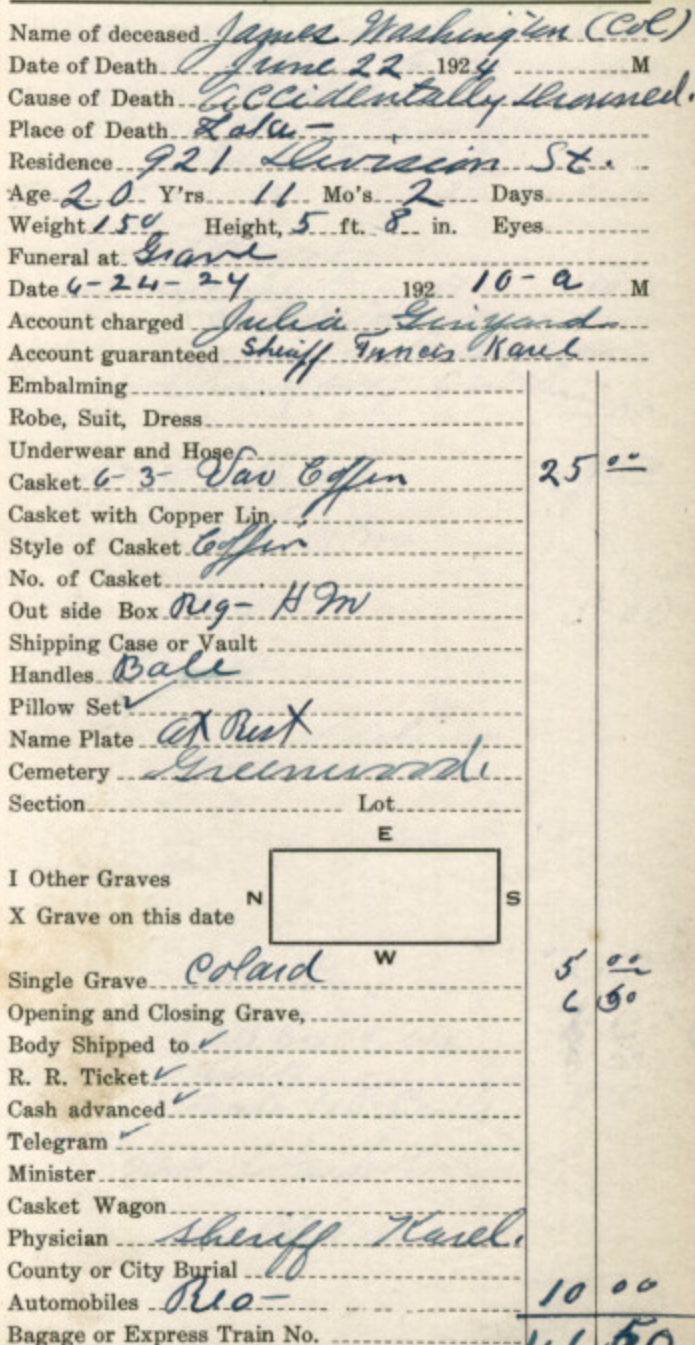 Name of deceased James Washington (Col)
Date of Death June 22 1924 M
Cause of Death accidentally drowned.
Place of Death Lake -
Residence 921 Division St.
Age 20 Y'rs 11 Mo's 2 Days
Weight 150 Height, 5 ft. 8 in. Eyes
Funeral at Grave
Date 6-24-24 192 10-a M
Account charged Julia Ginyard
Account guaranteed Sheriff Karel
Embalming
Robe, Suit, Dress
Underwear and Hose
Casket 6-3- Coffin 25 00
Casket with Copper Lin.
Style of Casket Coffin
No. of Casket
Out side Box Reg- H M
Shipping Case or Vault
Handles Bale
Pillow Set ✓
Name Plate at Rest
Cemetery Greenwood
Section Lot
E
I Other Graves
N S
X Grave on this date
W
Single Grave Colard 5 00
Opening and Closing Grave, 6 50
Body Shipped to ✓
R. R. Ticket ✓
Cash advanced ✓
Telegram ✓
Minister
Casket Wagon
Physician Sheriff Karel.
County or City Burial
Automobiles Reo- 10 00
Bagage or Express Train No.